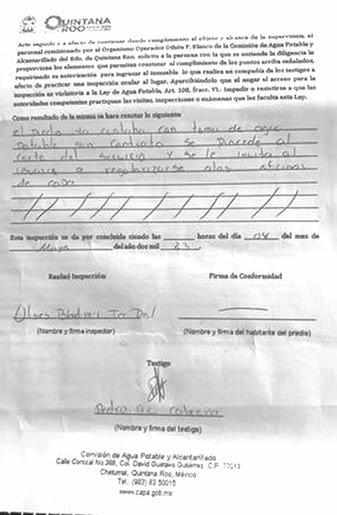 QUINTANA
ROO
Acto seguido y a efecto de continuar dando cumplimiento al objeto y alcance de la supervisión, el
personal comisionado por el Organismo Operador Othón P. Blanco de la Comisión de Agua Potable y
Alcantarillado del Edo. de Quintana Roo. solicita a la persona con la que se entienda la diligencia le
proporcione los elementos que permitan constatar el cumplimiento de los puntos arriba señalados,
requiriendo su autorización para ingresar al inmueble lo que realiza en compañía de los testigos a
efecto de practicar una inspección ocular al lugar. Apercibiéndole que el negar el acceso para la
inspección es violatoria a la Ley de Agua Potable, Art. 108, fracc. VI.- Impedir o resistirse a que las
autoridades competentes practiquen las visitas, inspecciones o exámenes que les faculta esta Ley.
Como resultado de la misma se hace constar lo siguiente:
el Predio ya contaba con toma de agua
Potable sin contrato se Procede al
corte del servicio y se le invita al
usuario a regularizarse a las oficinas
de capa
Esta inspección se da por concluida siendo las horas del día 04 del mes de
Mayo del año dos mil 23.
Realizó Inspección: Firma de Conformidad
Ulises
(Nombre y firma inspector) (Nombre y firma del habitante del predio)
Testigo
Pedro
(Nombre y firma del testigo)
Comisión de Agua Potable y Alcantarillado
Calle Corozal No.388, Col. David Gustavo Gutiérrez, C.P. 77013
Chetumal, Quintana Roo, México
Tel. (983) 83 50015
www.capa.gob.mx